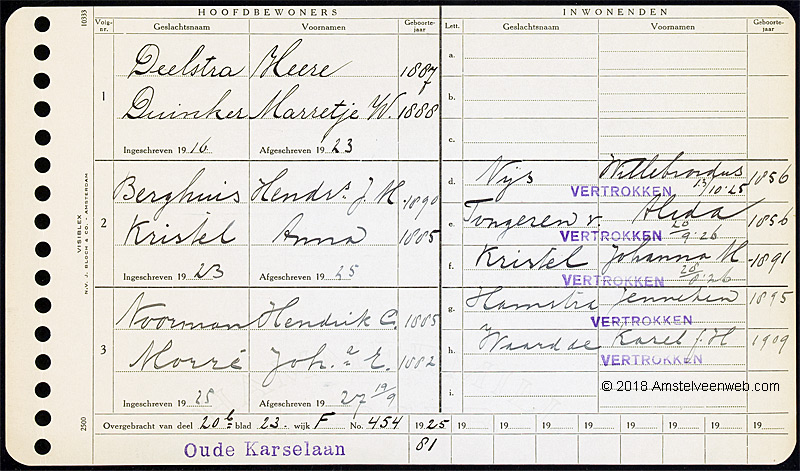 HOOFDBEWONERS
INWONENDEN
10333
Volg-
nr.
Geslachtsnaam
Voornamen
Geboorte-
jaar
Lett.
Geslachtsnaam
Voornamen
Geboorte-
jaar
1
Deelstra Heere 1887
Duinker Marretje W. 1888
Ingeschreven 1916 Afgeschreven 1923
2
Berghuis Hendrs. J. H. 1890
Kristel Anna 1885
Ingeschreven 1923 Afgeschreven 1925
3
Noorman Hendrik C. 1885
Morré Joh.a E. 1882
Ingeschreven 1925 Afgeschreven 1927 19/9
a.
b.
c.
d. Nijs Willebrordus 1856
VERTROKKEN 13/10.25
e. Tongeren v. Aleda 1856
VERTROKKEN 20/9.26
f. Kristel Johanna M. 1891
VERTROKKEN 28/8.26
g. Hamstra Jenneken 1895
VERTROKKEN
h. Waard de Karel J. H 1909
VERTROKKEN
i.
© 2018 Amstelveenweb.com
VISIBLEX
N.V. J. BLOCH & CO. - AMSTERDAM
2500
Overgebracht van deel 20 b blad 23 wijk F No. 454 1925 19 19 19 19 19 19 19 19
Oude Karselaan
81